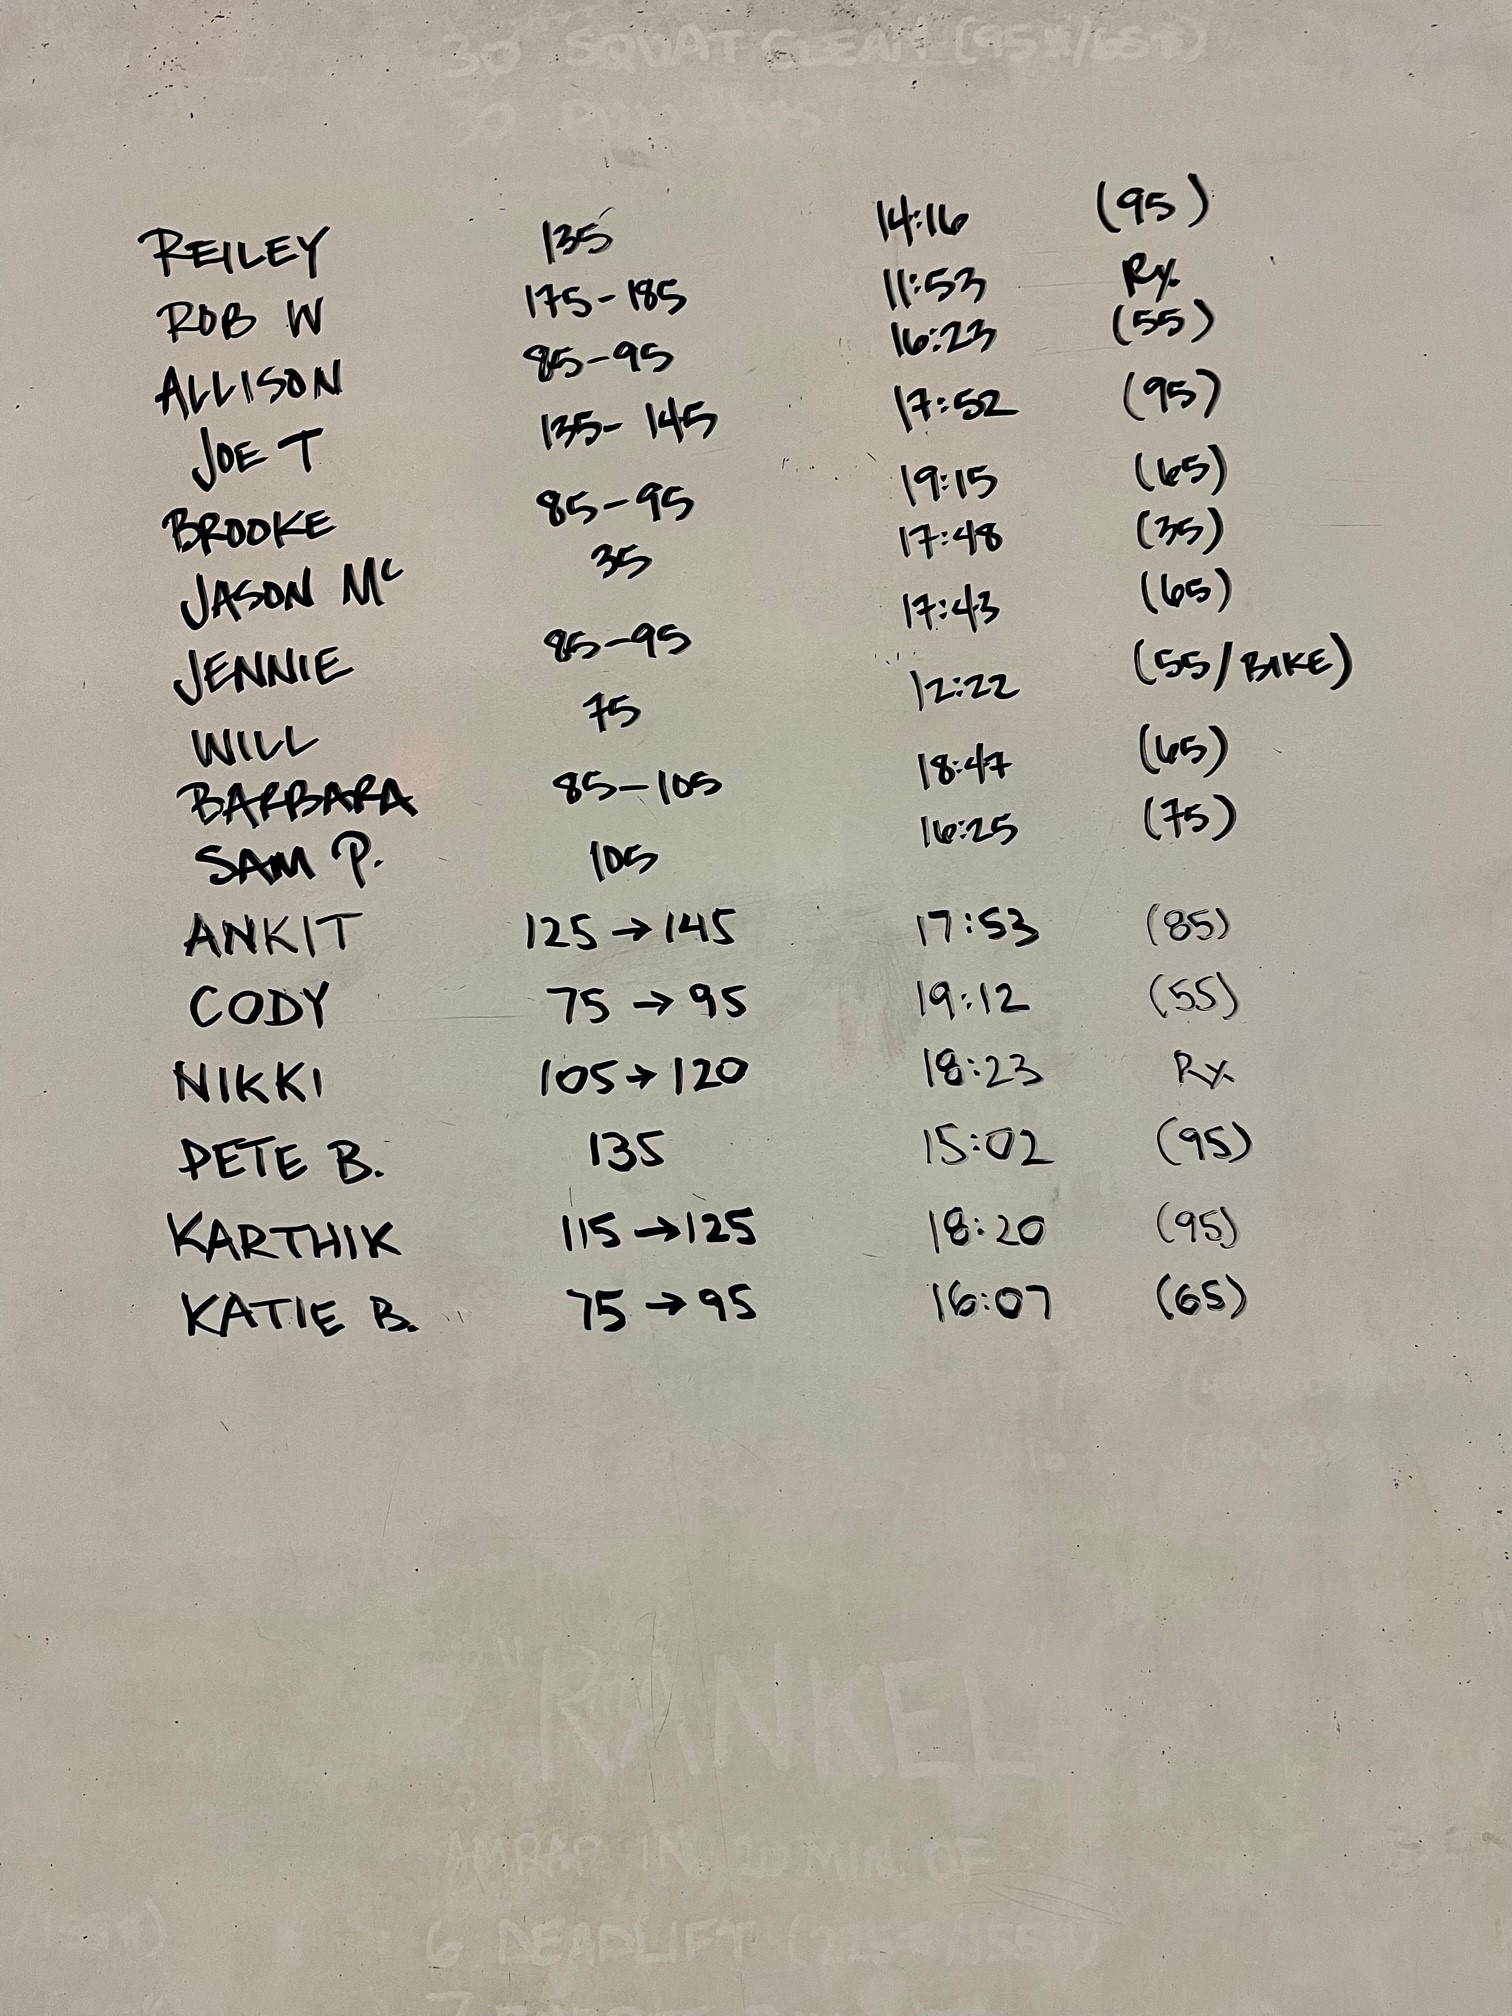 30 SQUAT CLEAN (95#/65#)
30 PULL-UPS
REILEY 135 14:16 (95)
ROB W 175-185 11:53 Rx
ALLISON 85-95 16:23 (55)
JOE T 135-145 17:52 (95)
BROOKE 85-95 19:15 (65)
JASON Mc 35 17:48 (35)
JENNIE 85-95 17:43 (65)
WILL 75 12:22 (55/BIKE)
BARBARA 85-105 18:47 (65)
SAM P. 105 16:25 (75)
ANKIT 125→145 17:53 (85)
CODY 75→95 19:12 (55)
NIKKI 105→120 18:23 Rx
PETE B. 135 15:02 (95)
KARTHIK 115→125 18:20 (95)
KATIE B. 75→95 16:07 (65)
"RANKEL"
AMRAP IN 20 MIN. OF:
6 DEADLIFT (225#/155#)
7